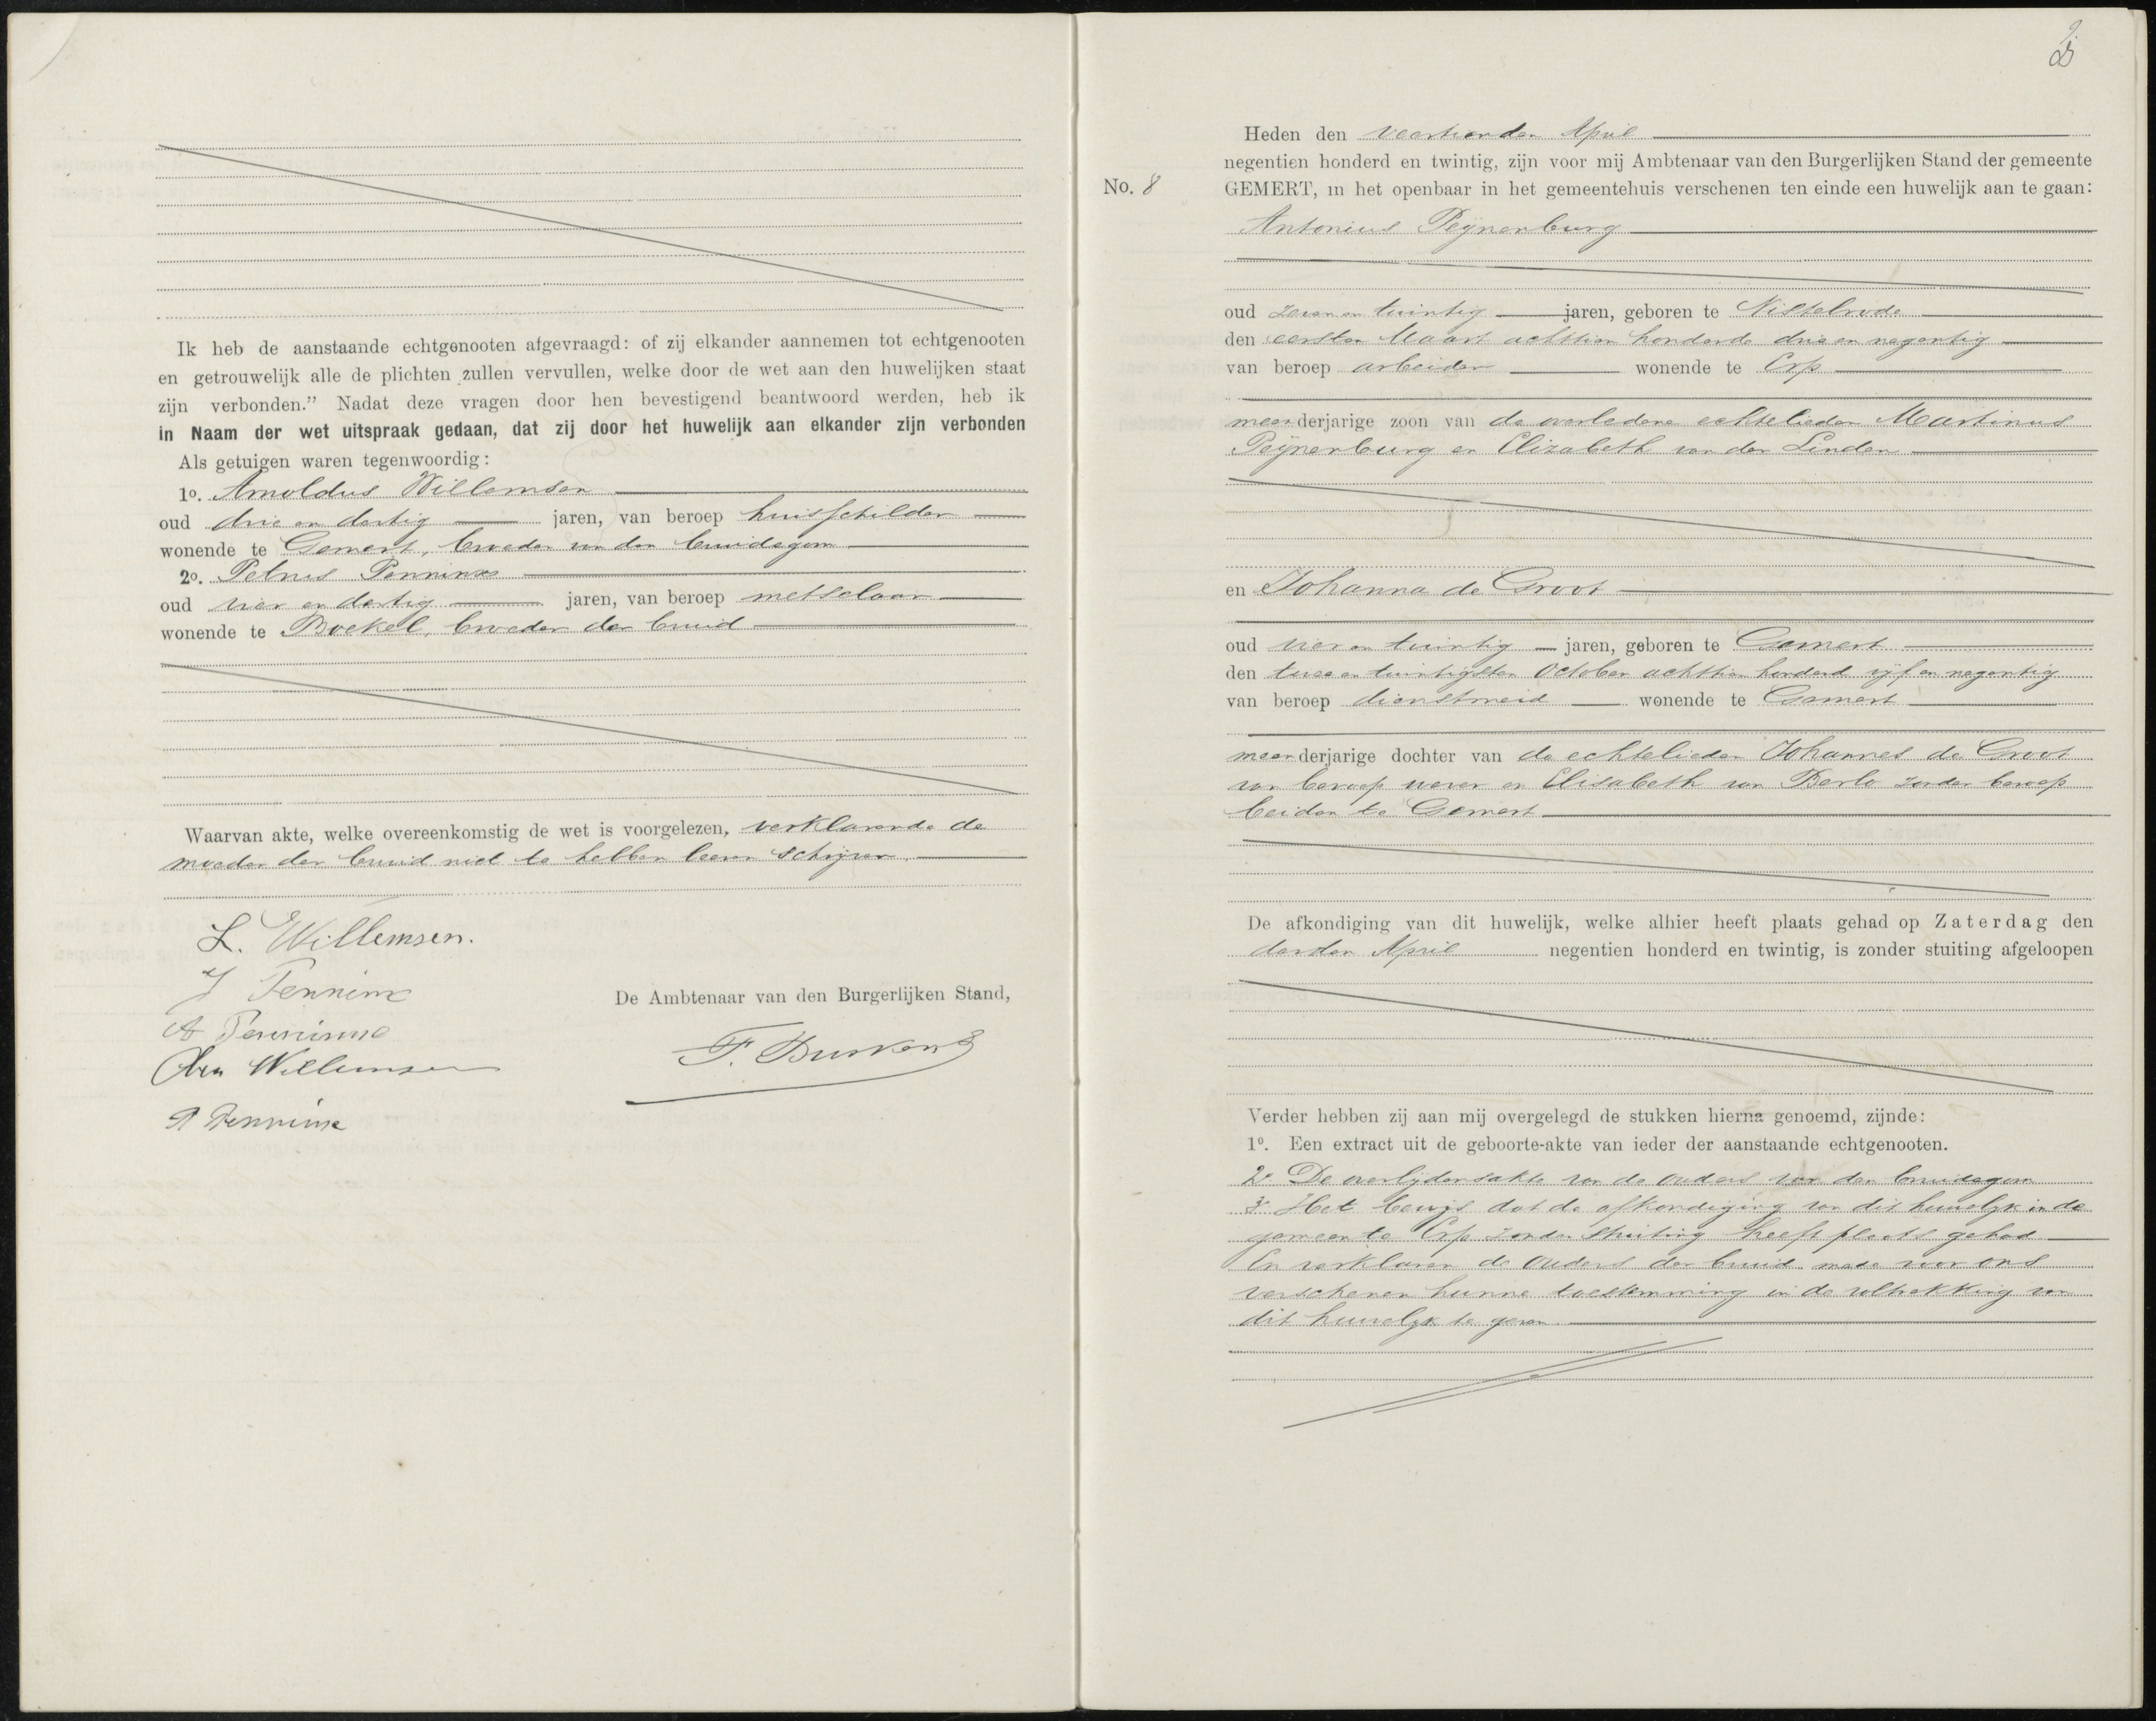 Ik heb de aanstaande echtgenooten afgevraagd: of zij elkander aannemen tot echtgenooten
en getrouwelijk alle de plichten zullen vervullen, welke door de wet aan den huwelijken staat
zijn verbonden.” Nadat deze vragen door hen bevestigend beantwoord werden, heb ik
in Naam der wet uitspraak gedaan, dat zij door het huwelijk aan elkander zijn verbonden
Als getuigen waren tegenwoordig:
1o. Arnoldus Willemsen
oud drie en dertig jaren, van beroep huisschilder
wonende te Gemert, broeder van den bruidegom
2o. Petrus Penninx
oud vier en dertig jaren, van beroep metselaar
wonende te Boekel, broeder der bruid
Waarvan akte, welke overeenkomstig de wet is voorgelezen, verklarende de
moeder der bruid niet te hebben leeren schrijven.
L. Willemsen.
J Penninx
De Ambtenaar van den Burgerlijken Stand,
A Penninx
Willemsen
P Penninx
No. 8
Heden den veertienden April
negentien honderd en twintig, zijn voor mij Ambtenaar van den Burgerlijken Stand der gemeente
GEMERT, in het openbaar in het gemeentehuis verschenen ten einde een huwelijk aan te gaan:
Antonius Peijnenburg
oud zeven en twintig jaren, geboren te Nistelrode
den eersten Maart achttien honderd drie en negentig
van beroep arbeider wonende te Erp
meerderjarige zoon van de overledene echtelieden Martinus
Peijnenburg en Elizabeth van der Linden
en Johanna de Groot
oud vier en twintig jaren, geboren te Gemert
den twee en twintigsten October achttien honderd vijf en negentig
van beroep dienstmeid wonende te Gemert
meerderjarige dochter van de echtelieden Johannes de Groot
van beroep wever en Elisabeth van Berlo zonder beroep
beiden te Gemert
De afkondiging van dit huwelijk, welke alhier heeft plaats gehad op Zaterdag den
derden April negentien honderd en twintig, is zonder stuiting afgeloopen
Verder hebben zij aan mij overgelegd de stukken hierna genoemd, zijnde:
1o. Een extract uit de geboorte-akte van ieder der aanstaande echtgenooten.
2o De overlijdensakte van de ouders van den bruidegom
3o Het bewijs dat de afkondiging van dit huwelijk in de
gemeente Erp zonder stuiting heeft plaats gehad
En verklaren de ouders der bruid mede voor ons
verschenen hunne toestemming in de voltrekking van
dit huwelijk te geven.